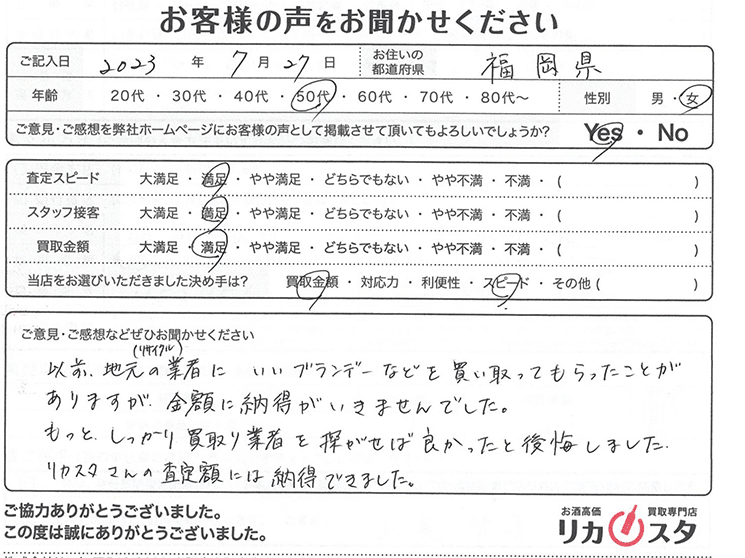 お客様の声をお聞かせください
ご記入日 2023 年 7 月 27 日 お住いの都道府県 福岡県
年齢 20代 ・ 30代 ・ 40代 ・ 50代 ・ 60代 ・ 70代 ・ 80代〜 性別 男 ・ 女
ご意見・ご感想を弊社ホームページにお客様の声として掲載させて頂いてもよろしいでしょうか? Yes ・ No
査定スピード 大満足 ・ 満足 ・ やや満足 ・ どちらでもない ・ やや不満 ・ 不満 ・ ( )
スタッフ接客 大満足 ・ 満足 ・ やや満足 ・ どちらでもない ・ やや不満 ・ 不満 ・ ( )
買取金額 大満足 ・ 満足 ・ やや満足 ・ どちらでもない ・ やや不満 ・ 不満 ・ ( )
当店をお選びいただきました決め手は? 買取金額 ・ 対応力 ・ 利便性 ・ スピード ・ その他 ( )
ご意見・ご感想などぜひお聞かせください
(リサイクル)
以前、地元の業者に いいブランデーなどを買い取ってもらったことが
ありますが、金額に納得がいきませんでした。
もっと、しっかり買取り業者を探がせば良かったと後悔しました.
リカスタさんの査定額には納得できました。
ご協力ありがとうございました。
この度は誠にありがとうございました。
お酒高価 買取専門店
リカスタ